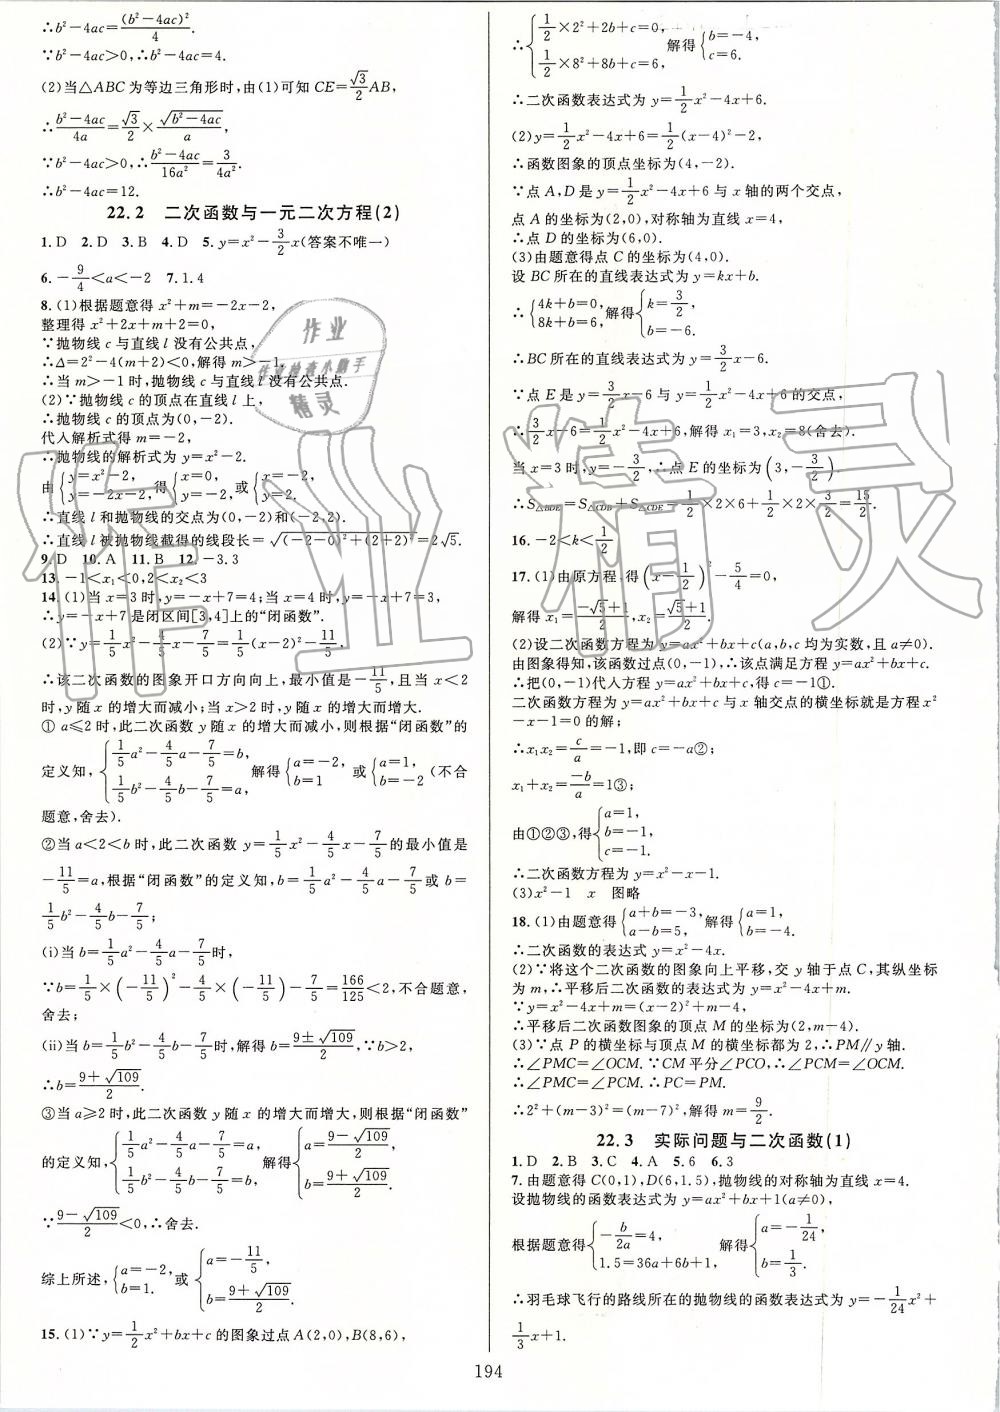 ∴b²-4ac=(b²-4ac)²/4.
∵b²-4ac>0,∴b²-4ac=4.
(2)当△ABC为等边三角形时,由(1)可知CE=√3/2AB,
∴(b²-4ac)/4a=√3/2×√(b²-4ac)/a,
∵b²-4ac>0,∴(b²-4ac)/16a²=3/4a².
∴b²-4ac=12.
22.2 二次函数与一元二次方程(2)
1.D 2.D 3.B 4.D 5.y=x²-3/2x(答案不唯一)
6.-9/4<a<-2 7.1.4
8.(1)根据题意得x²+m=-2x-2,
整理得x²+2x+m+2=0,
∵抛物线c与直线l没有公共点,
∴Δ=2²-4(m+2)<0,解得m>-1.
∴当m>-1时,抛物线c与直线l没有公共点.
(2)∵抛物线c的顶点在直线l上,
∴抛物线c的顶点为(0,-2).
代入解析式得m=-2,
∴抛物线的解析式为y=x²-2.
由{y=x²-2, y=-2x-2,得{x=0, y=-2,或{x=-2, y=2.
∴直线l和抛物线的交点为(0,-2)和(-2,2).
∴直线l被抛物线截得的线段长=√((-2-0)²+(2+2)²)=2√5.
9.D 10.A 11.B 12.-3.3
13.-1<x₁<0,2<x₂<3
14.(1)当x=3时,y=-x+7=4;当x=4时,y=-x+7=3,
∴y=-x+7是闭区间[3,4]上的“闭函数”.
(2)∵y=1/5x²-4/5x-7/5=1/5(x-2)²-11/5,
∴该二次函数的图象开口方向向上,最小值是-11/5,且当x<2
时,y随x的增大而减小;当x>2时,y随x的增大而增大.
①a≤2时,此二次函数y随x的增大而减小,则根据“闭函数”的
定义知,{1/5a²-4/5a-7/5=b, 1/5b²-4/5b-7/5=a,解得{a=-2, b=1或{a=1, b=-2(不合
题意,舍去).
②当a<2<b时,此二次函数y=1/5x²-4/5x-7/5的最小值是
-11/5=a,根据“闭函数”的定义知,b=1/5a²-4/5a-7/5或b=
1/5b²-4/5b-7/5;
(i)当b=1/5a²-4/5a-7/5时,
∵b=1/5×(-11/5)²-4/5×(-11/5)-7/5=166/125<2,不合题意,
舍去;
(ii)当b=1/5b²-4/5b-7/5时,解得b=(9±√109)/2,∵b>2,
∴b=(9+√109)/2.
③当a≥2时,此二次函数y随x的增大而增大,则根据“闭函数”
的定义知,{1/5a²-4/5a-7/5=a, 1/5b²-4/5b-7/5=b,解得{a=(9-√109)/2, b=(9+√109)/2.
∵(9-√109)/2<0,∴舍去.
综上所述,{a=-2, b=1.或{a=-11/5, b=(9+√109)/2.
15.(1)∵y=1/2x²+bx+c的图象过点A(2,0),B(8,6),
∴{1/2×2²+2b+c=0, 1/2×8²+8b+c=6,解得{b=-4, c=6.
∴二次函数表达式为y=1/2x²-4x+6.
(2)y=1/2x²-4x+6=1/2(x-4)²-2,
∴函数图象的顶点坐标为(4,-2).
∵点A,D是y=1/2x²-4x+6与x轴的两个交点,
点A的坐标为(2,0),对称轴为直线x=4,
∴点D的坐标为(6,0).
(3)由题意得点C的坐标为(4,0).
设BC所在的直线表达式为y=kx+b.
∴{4k+b=0, 8k+b=6,解得{k=3/2, b=-6.
∴BC所在的直线表达式为y=3/2x-6.
∵点E是y=3/2x-6与y=1/2x²-4x+6的交点,
∴3/2x-6=1/2x²-4x+6,解得x₁=3,x₂=8(舍去).
当x=3时,y=-3/2,∴点E的坐标为(3,-3/2).
∴S△BDE=S△CDB+S△CDE=1/2×2×6+1/2×2×3/2=15/2.
16.-2<k<1/2
17.(1)由原方程,得(x-1/2)²-5/4=0,
解得x₁=(-√5+1)/2,x₂=(√5+1)/2.
(2)设二次函数方程为y=ax²+bx+c(a,b,c均为实数,且a≠0).
由图象得知,该函数过点(0,-1),∴该点满足方程y=ax²+bx+c.
∴把(0,-1)代入方程y=ax²+bx+c,得c=-1①.
二次函数方程为y=ax²+bx+c与x轴交点的横坐标就是方程x²
-x-1=0的解;
∴x₁x₂=c/a=-1,即c=-a②;
x₁+x₂=-b/a=1③;
由①②③,得{a=1, b=-1, c=-1.
∴二次函数方程为y=x²-x-1.
(3)x²-1 x 图略
18.(1)由题意得{a+b=-3, a-b=5,解得{a=1, b=-4.
∴二次函数的表达式y=x²-4x.
(2)∵将这个二次函数的图象向上平移,交y轴于点C,其纵坐标
为m,∴平移后二次函数的表达式为y=x²-4x+m.
∵y=x²-4x+m=(x-2)²+m-4,
∴平移后二次函数图象的顶点M的坐标为(2,m-4).
(3)∵点P的横坐标与顶点M的横坐标都为2,∴PM∥y轴.
∴∠PMC=∠OCM.∵CM平分∠PCO,∴∠PCM=∠OCM.
∴∠PMC=∠PCM.∴PC=PM.
∴2²+(m-3)²=(m-7)²,解得m=9/2.
22.3 实际问题与二次函数(1)
1.D 2.B 3.C 4.A 5.6 6.3
7.由题意得C(0,1),D(6,1.5),抛物线的对称轴为直线x=4.
设抛物线的函数表达式为y=ax²+bx+1(a≠0),
根据题意得{-b/2a=4, 1.5=36a+6b+1,解得{a=-1/24, b=1/3.
∴羽毛球飞行的路线所在的抛物线的函数表达式为y=-1/24x²+
1/3x+1.
194
作业
作业检查小助手
精灵
作业精灵